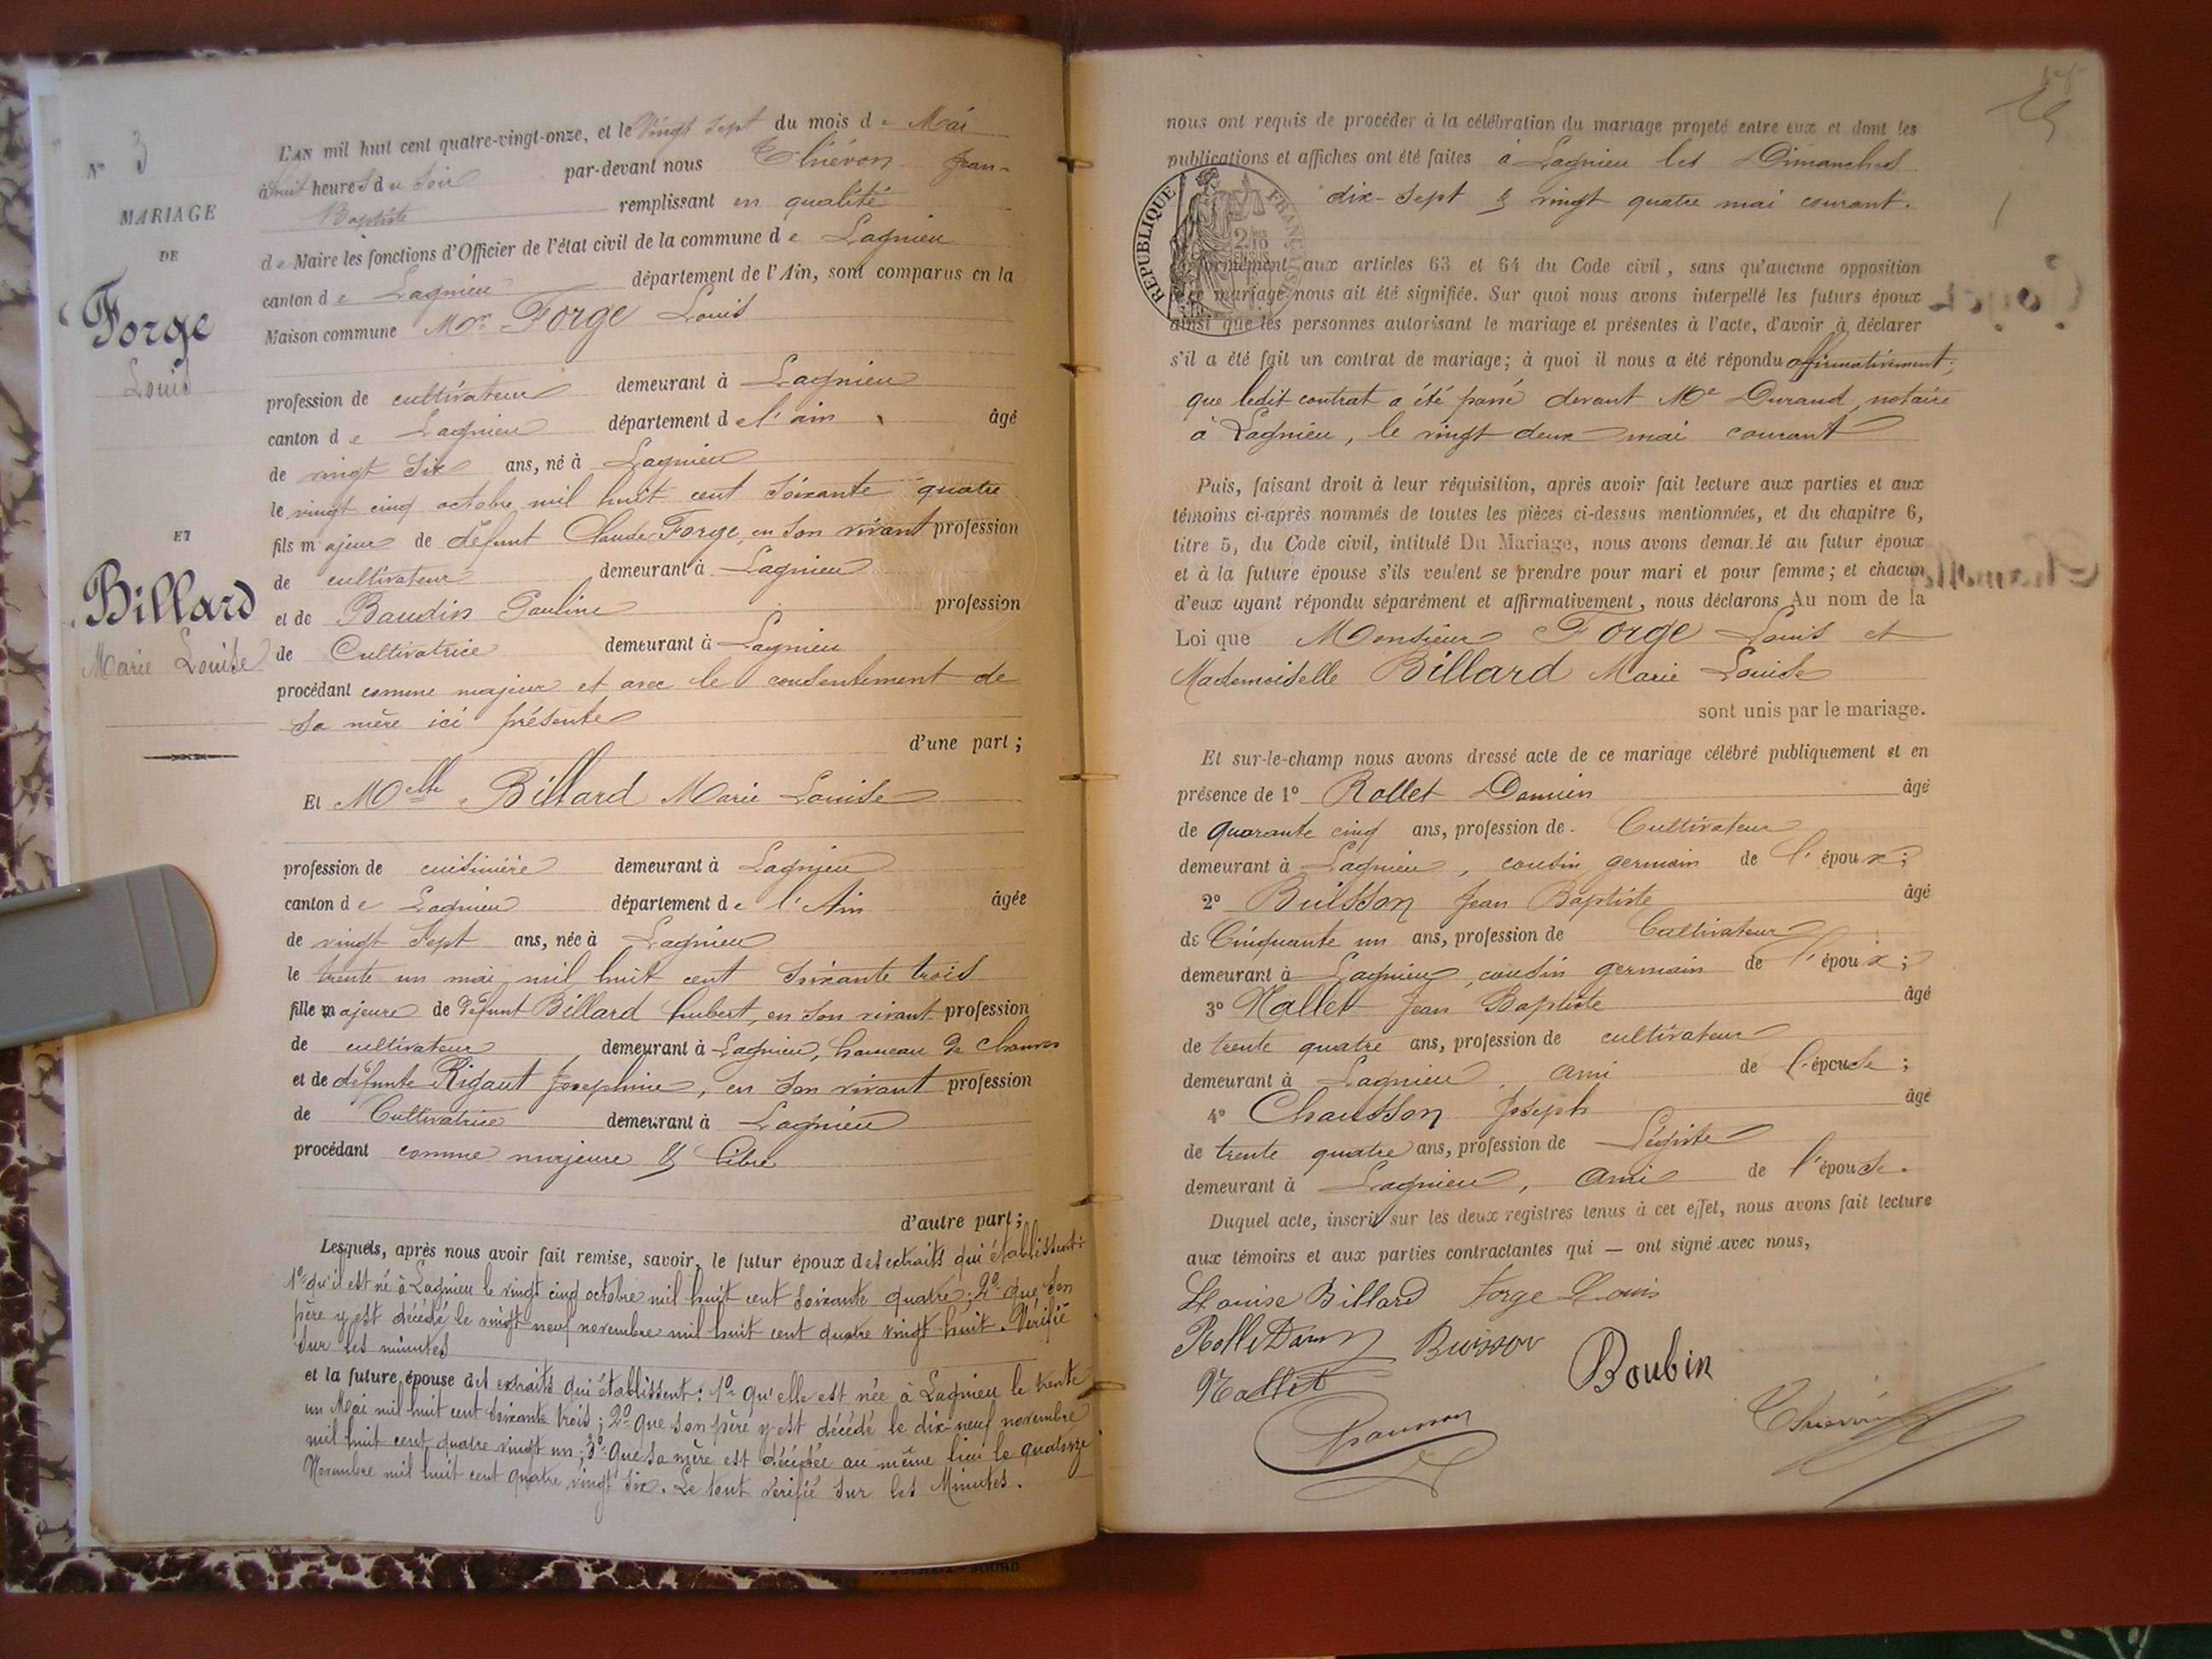 N° 3
MARIAGE
DE
Forge
Louis
ET
Billard
Marie Louise
L'AN mil huit cent quatre-vingt-onze, et le Vingt Sept du mois de Mai
à huit heures du Soir par-devant nous Thiévon Jean-
Baptiste remplissant en qualité
de Maire les fonctions d'Officier de l'état civil de la commune de Lagnieu
canton de Lagnieu département de l'Ain, sont comparus en la
Maison commune Mr Forge Louis
profession de cultivateur demeurant à Lagnieu
canton de Lagnieu département de l'ain âgé
de vingt Six ans, né à Lagnieu
le vingt cinq octobre mil huit cent soixante quatre
fils majeur de défunt Claude Forge, en son vivant profession
de cultivateur demeurant à Lagnieu
et de Baudin Pauline profession
de Cultivatrice demeurant à Lagnieu
procédant comme majeur et avec le consentement de
sa mère ici présente
d'une part;
Et Melle Billard Marie Louise
profession de cuisinière demeurant à Lagnieu
canton de Lagnieu département de l'Ain âgée
de vingt Sept ans, née à Lagnieu
le trente un mai mil huit cent soixante trois
fille majeure de défunt Billard hubert, en son vivant profession
de cultivateur demeurant à Lagnieu, hameau de
et de défunte Rigaut Josephine, en son vivant profession
de Cultivatrice demeurant à Lagnieu
procédant comme majeure & libre
d'autre part;
Lesquels, après nous avoir fait remise, savoir, le futur époux des extraits qui établissent:
1° qu'il est né à Lagnieu le vingt cinq octobre mil huit cent soixante quatre; 2° que son
père y est décédé le vingt neuf novembre mil huit cent quatre vingt huit. Vérifié
sur les minutes
et la future épouse des extraits qui établissent: 1° qu'elle est née à Lagnieu le trente
un Mai mil huit cent soixante trois; 2° que son père y est décédé le dix-neuf novembre
mil huit cent quatre vingt un; 3° que sa mère est décédée au même lieu le quatorze
Novembre mil huit cent quatre vingt six. Le tout vérifié sur les Minutes.
nous ont requis de procéder à la célébration du mariage projeté entre eux et dont les
publications et affiches ont été faites à Lagnieu les Dimanches
dix-sept & vingt quatre mai courant.
REPUBLIQUE FRANÇAISE
aux articles 63 et 64 du Code civil, sans qu'aucune opposition
mariage nous ait été signifiée. Sur quoi nous avons interpellé les futurs époux
ainsi que les personnes autorisant le mariage et présentes à l'acte, d'avoir à déclarer
s'il a été fait un contrat de mariage; à quoi il nous a été répondu affirmativement;
que ledit contrat a été passé devant Me Durand, notaire
à Lagnieu, le vingt deux mai courant
Puis, faisant droit à leur réquisition, après avoir fait lecture aux parties et aux
témoins ci-après nommés de toutes les pièces ci-dessus mentionnées, et du chapitre 6,
titre 5, du Code civil, intitulé Du Mariage, nous avons demandé au futur époux
et à la future épouse s'ils veulent se prendre pour mari et pour femme; et chacun
d'eux ayant répondu séparément et affirmativement, nous déclarons Au nom de la
Loi que Monsieur Forge Louis et
Mademoiselle Billard Marie Louise
sont unis par le mariage.
Et sur-le-champ nous avons dressé acte de ce mariage célébré publiquement et en
présence de 1° Rollet Damien âgé
de quarante cinq ans, profession de Cultivateur
demeurant à Lagnieu, cousin germain de l'époux;
2° Buisson Jean Baptiste âgé
de Cinquante un ans, profession de Cultivateur
demeurant à Lagnieu, cousin germain de l'époux;
3° Nallet Jean Baptiste âgé
de trente quatre ans, profession de cultivateur
demeurant à Lagnieu, ami de l'épouse;
4° Chausson Joseph âgé
de trente quatre ans, profession de Légiste
demeurant à Lagnieu, ami de l'épouse.
Duquel acte, inscrit sur les deux registres tenus à cet effet, nous avons fait lecture
aux témoins et aux parties contractantes qui — ont signé avec nous,
Louise Billard Forge Louis
Buisson
Nallet Boubin